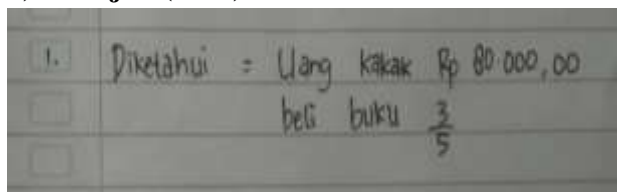 1. Diketahui = Uang kakak Rp 80.000,00
beli buku 3/5